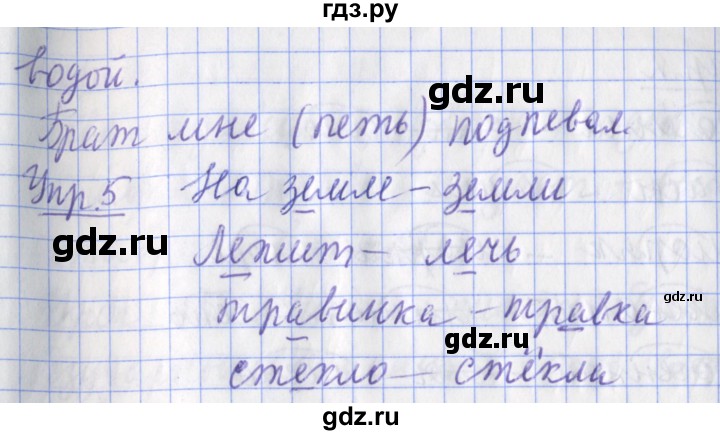 гдз.ру
водой.
gdz.ru
Брат мне (петь) подпевал.
Упр.5 На земле - земли
gdz.ru
Лежит - лечь
gdz.ru
травинка - травка
стекло - стёкла
gdz.ru
гдз.ру